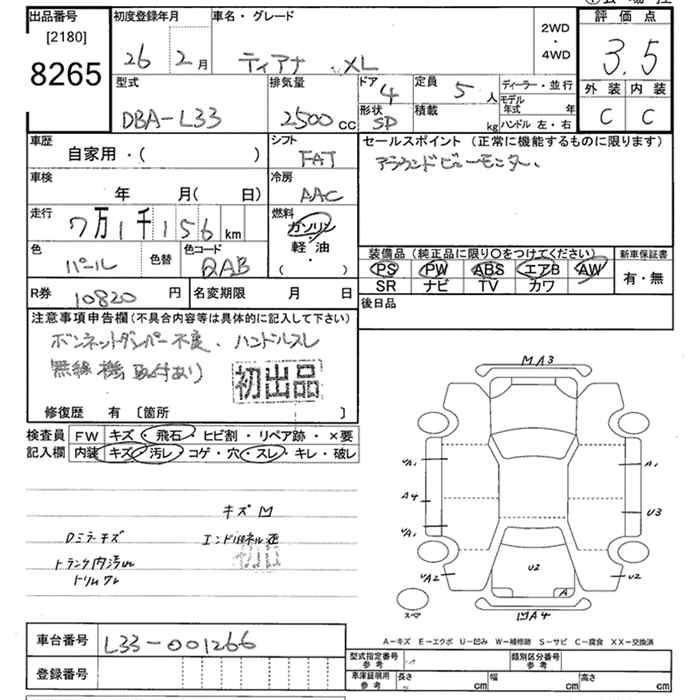 出品番号
[2180]
8265
初度登録年月
26 2月
車名・グレード
ティアナ XL
2WD
・
4WD
評価点
3.5
外装 内装
C C
型式
DBA-L33
排気量
2500cc
ドア
4
形状
SD
定員
5人
積載
kg
ディーラー・並行
モデル年式 年
ハンドル 左・右
車歴
自家用・( )
シフト
FAT
セールスポイント(正常に機能するものに限ります)
アラウンドビューモニター、
車検
年 月( 日)
冷房
AAC
走行
7万1千156km
燃料
ガソリン
軽・油
( ・ )
色
パール
色替
色コード
QAB
装備品(純正品に限り○をつけてください)
PS PW ABS エアB AW
SR ナビ TV カワ
新車保証書
有・無
R券
10820円
名変期限 月 日
後日品
注意事項申告欄(不具合内容等は具体的に記入して下さい)
ボンネットダンパー不良、ハンドルスレ
無線機取付あり
初出品
修復歴 有〔箇所 〕
検査員
記入欄
FW キズ・飛石・ヒビ割・リペア跡・×要
内装 キズ・汚レ・コゲ・穴・スレ・キレ・破レ
キズM
Dミラーキズ
トランク内汚レ
MA3
A1
A1
A4
U3
A1
A2
U2
U2
A
スペア
MA4
A-キズ E-エクボ U-凹み W-補修跡 S-サビ C-腐食 XX-交換済
車台番号
L33-001266
登録番号
型式指定番号
参考
類別区分番号
参考
車庫証明用
参考
長さ cm
幅 cm
高さ cm